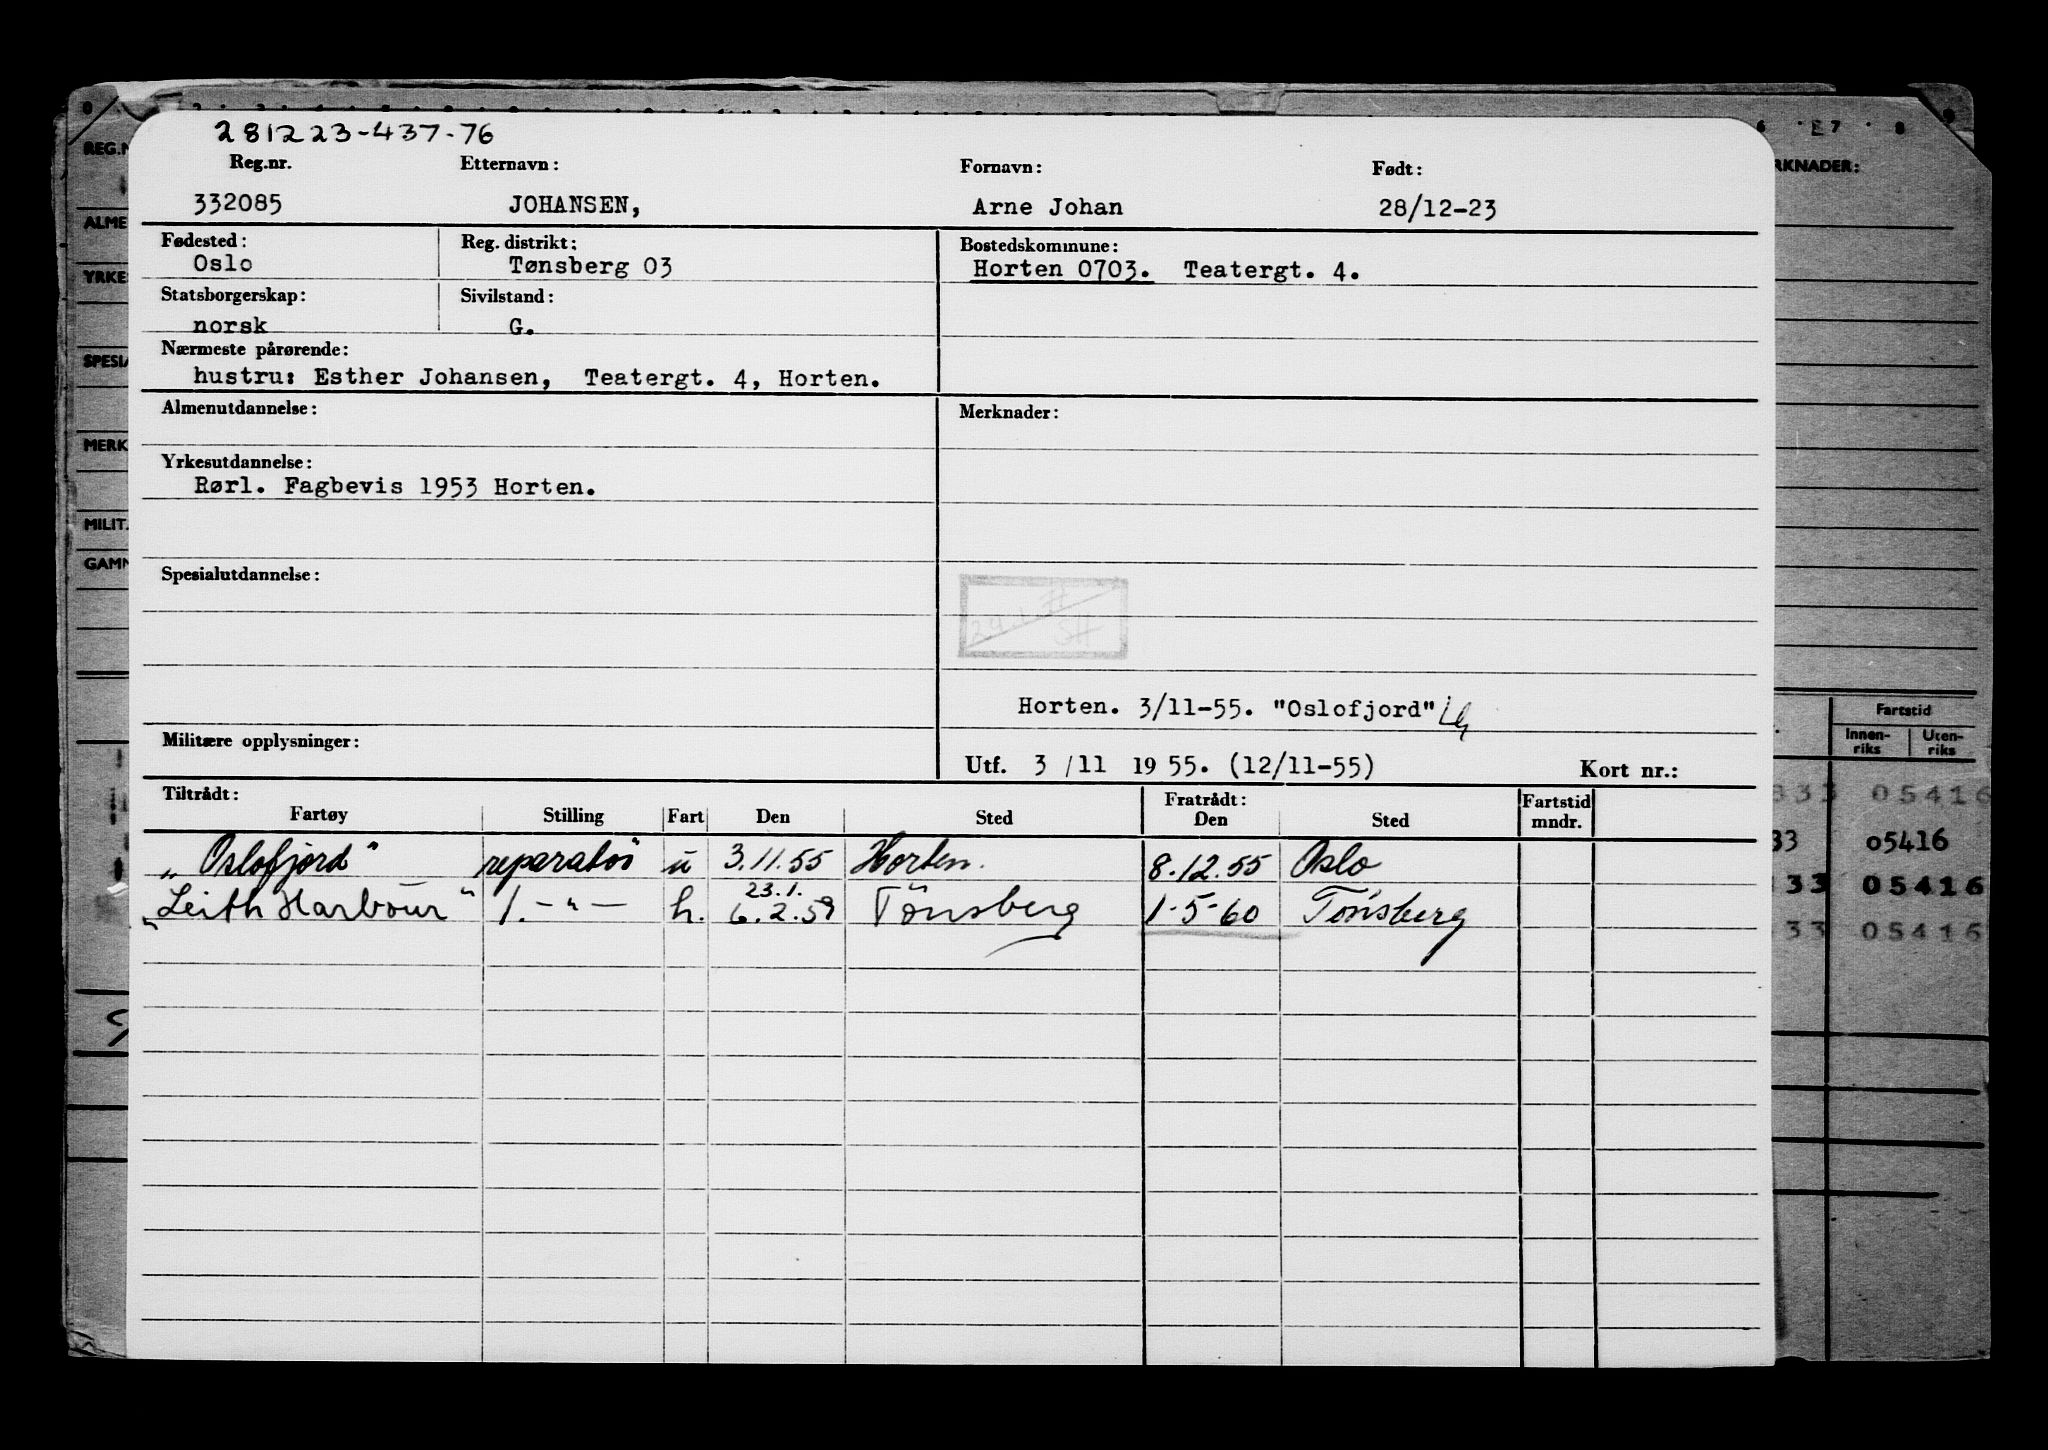 281223-437-76
Reg.nr. Etternavn: Fornavn: Født:
332085 JOHANSEN, Arne Johan 28/12-23
Fødested: Reg. distrikt: Bostedskommune:
Oslo Tønsberg 03 Horten 0703. Teatergt. 4.
Statsborgerskap: Sivilstand:
norsk G.
Nærmeste pårørende:
hustru: Esther Johansen, Teatergt. 4, Horten.
Almenutdannelse: Merknader:
Yrkesutdannelse:
Rørl. Fagbevis 1953 Horten.
Spesialutdannelse:
Horten. 3/11-55. "Oslofjord"
Militære opplysninger:
Utf. 3 /11 19 55. (12/11-55) Kort nr.:
Tiltrådt: Fratrådt: Fartstid
Fartøy Stilling Fart Den Sted Den Sted mndr.
"Oslofjord" reparatør u 3.11.55 Horten. 8.12.55 Oslo
23.1.
"Leith Harbour" 1. -"- h. 6.2.59 Tönsberg 1-5-60 Tönsberg
REG.N
ALME
YRKE
SPESIA
MERK
MILIT.
GAMN
RKNADER:
Fartstid
Innen-riks Uten-riks
333 05416
33 05416
33 05416
33 05416